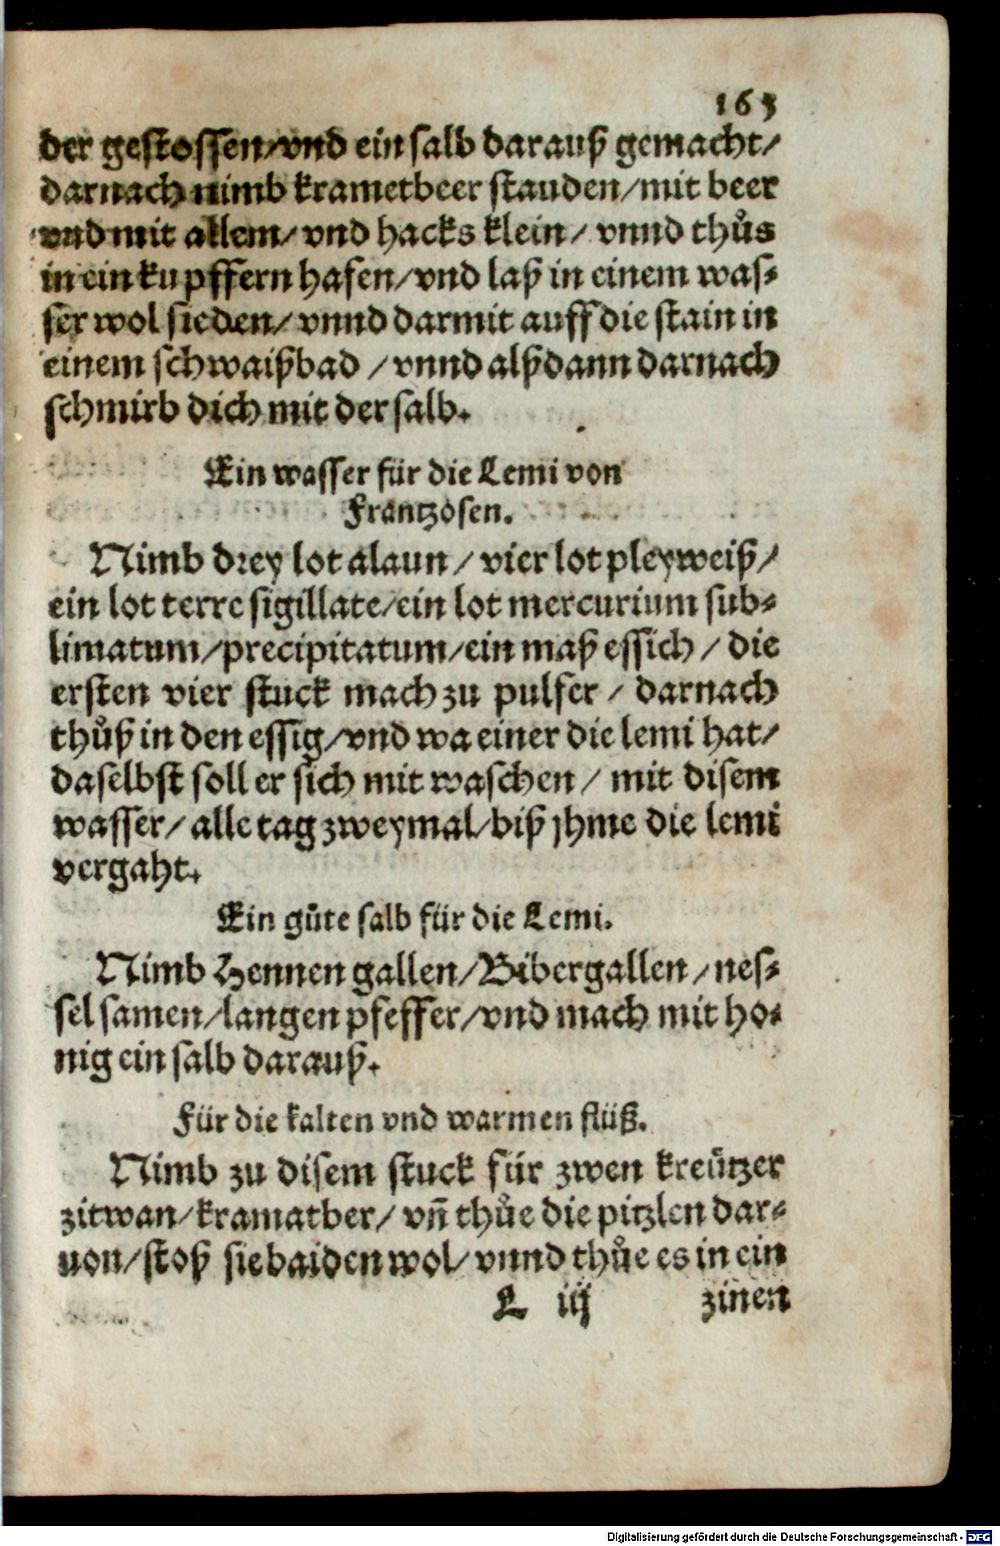 163
der gestossen/vnd ein salb darauß gemacht/
darnach nimb krametbeer stauden/mit beer
vnd mit allem/ vnd hacks klein/ vnnd thůs
in ein kupffern hafen/vnd laß in einem was⸗
ser wol sieden/ vnnd darmit auff die stain in
einem schwaißbad / vnnd alßdann darnach
schmirb dich mit der salb.
Ein wasser für die Lemi von
Frantzosen.
Nimb drey lot alaun / vier lot pleyweiß/
ein lot terre sigillate/ein lot mercurium sub⸗
limatum/precipitatum/ein maß essich / die
ersten vier stuck mach zu pulfer / darnach
thůß in den essig/vnd wa einer die lemi hat/
daselbst soll er sich mit waschen / mit disem
wasser/ alle tag zweymal/biß jhme die lemi
vergaht.
Ein gůte salb für die Lemi.
Nimb Hennen gallen/Bibergallen /nes⸗
sel samen/langen pfeffer/vnd mach mit ho⸗
nig ein salb darauß.
Für die kalten vnd warmen flüß.
Nimb zu disem stuck für zwen kreützer
zitwan/kramatber/ vñ thůe die pitzlen dar⸗
uon/stoß sie baiden wol/ vnnd thůe es in ein
L iij zinen
Digitalisierung gefördert durch die Deutsche Forschungsgemeinschaft - DFG